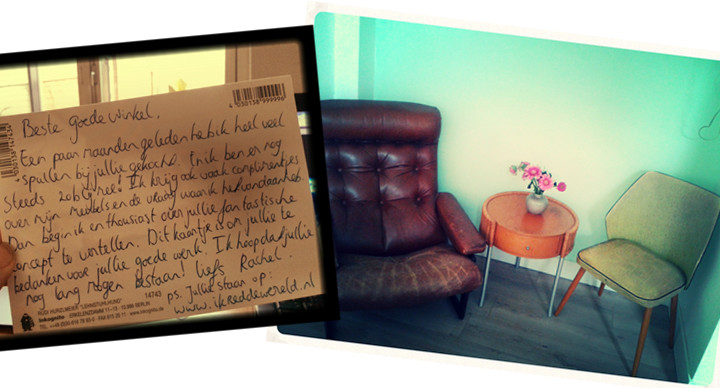 4 030138 999996
Beste goede winkel,
Een paar maanden geleden heb ik heel veel
spullen bij jullie gekocht. En ik ben er nog
steeds zo blij mee! Ik krijg ook vaak complimentjes
over mijn meubels en de vraag waar ik het vandaan heb.
Dan begin ik enthousiast over jullie fantastische
concept te vertellen. Dit kaartje is om jullie te
bedanken voor jullie goede werk. Ik hoop dat jullie
nog lang mogen bestaan! liefs Rachel.
ps. Jullie staan op:
www.ikreddewereld.nl
14743
RUDI HURZLMEIER "LEHNSTUHLNUNG"
Inkognito · ERKELENZDAMM 11–13 · 10.999 BERLIN